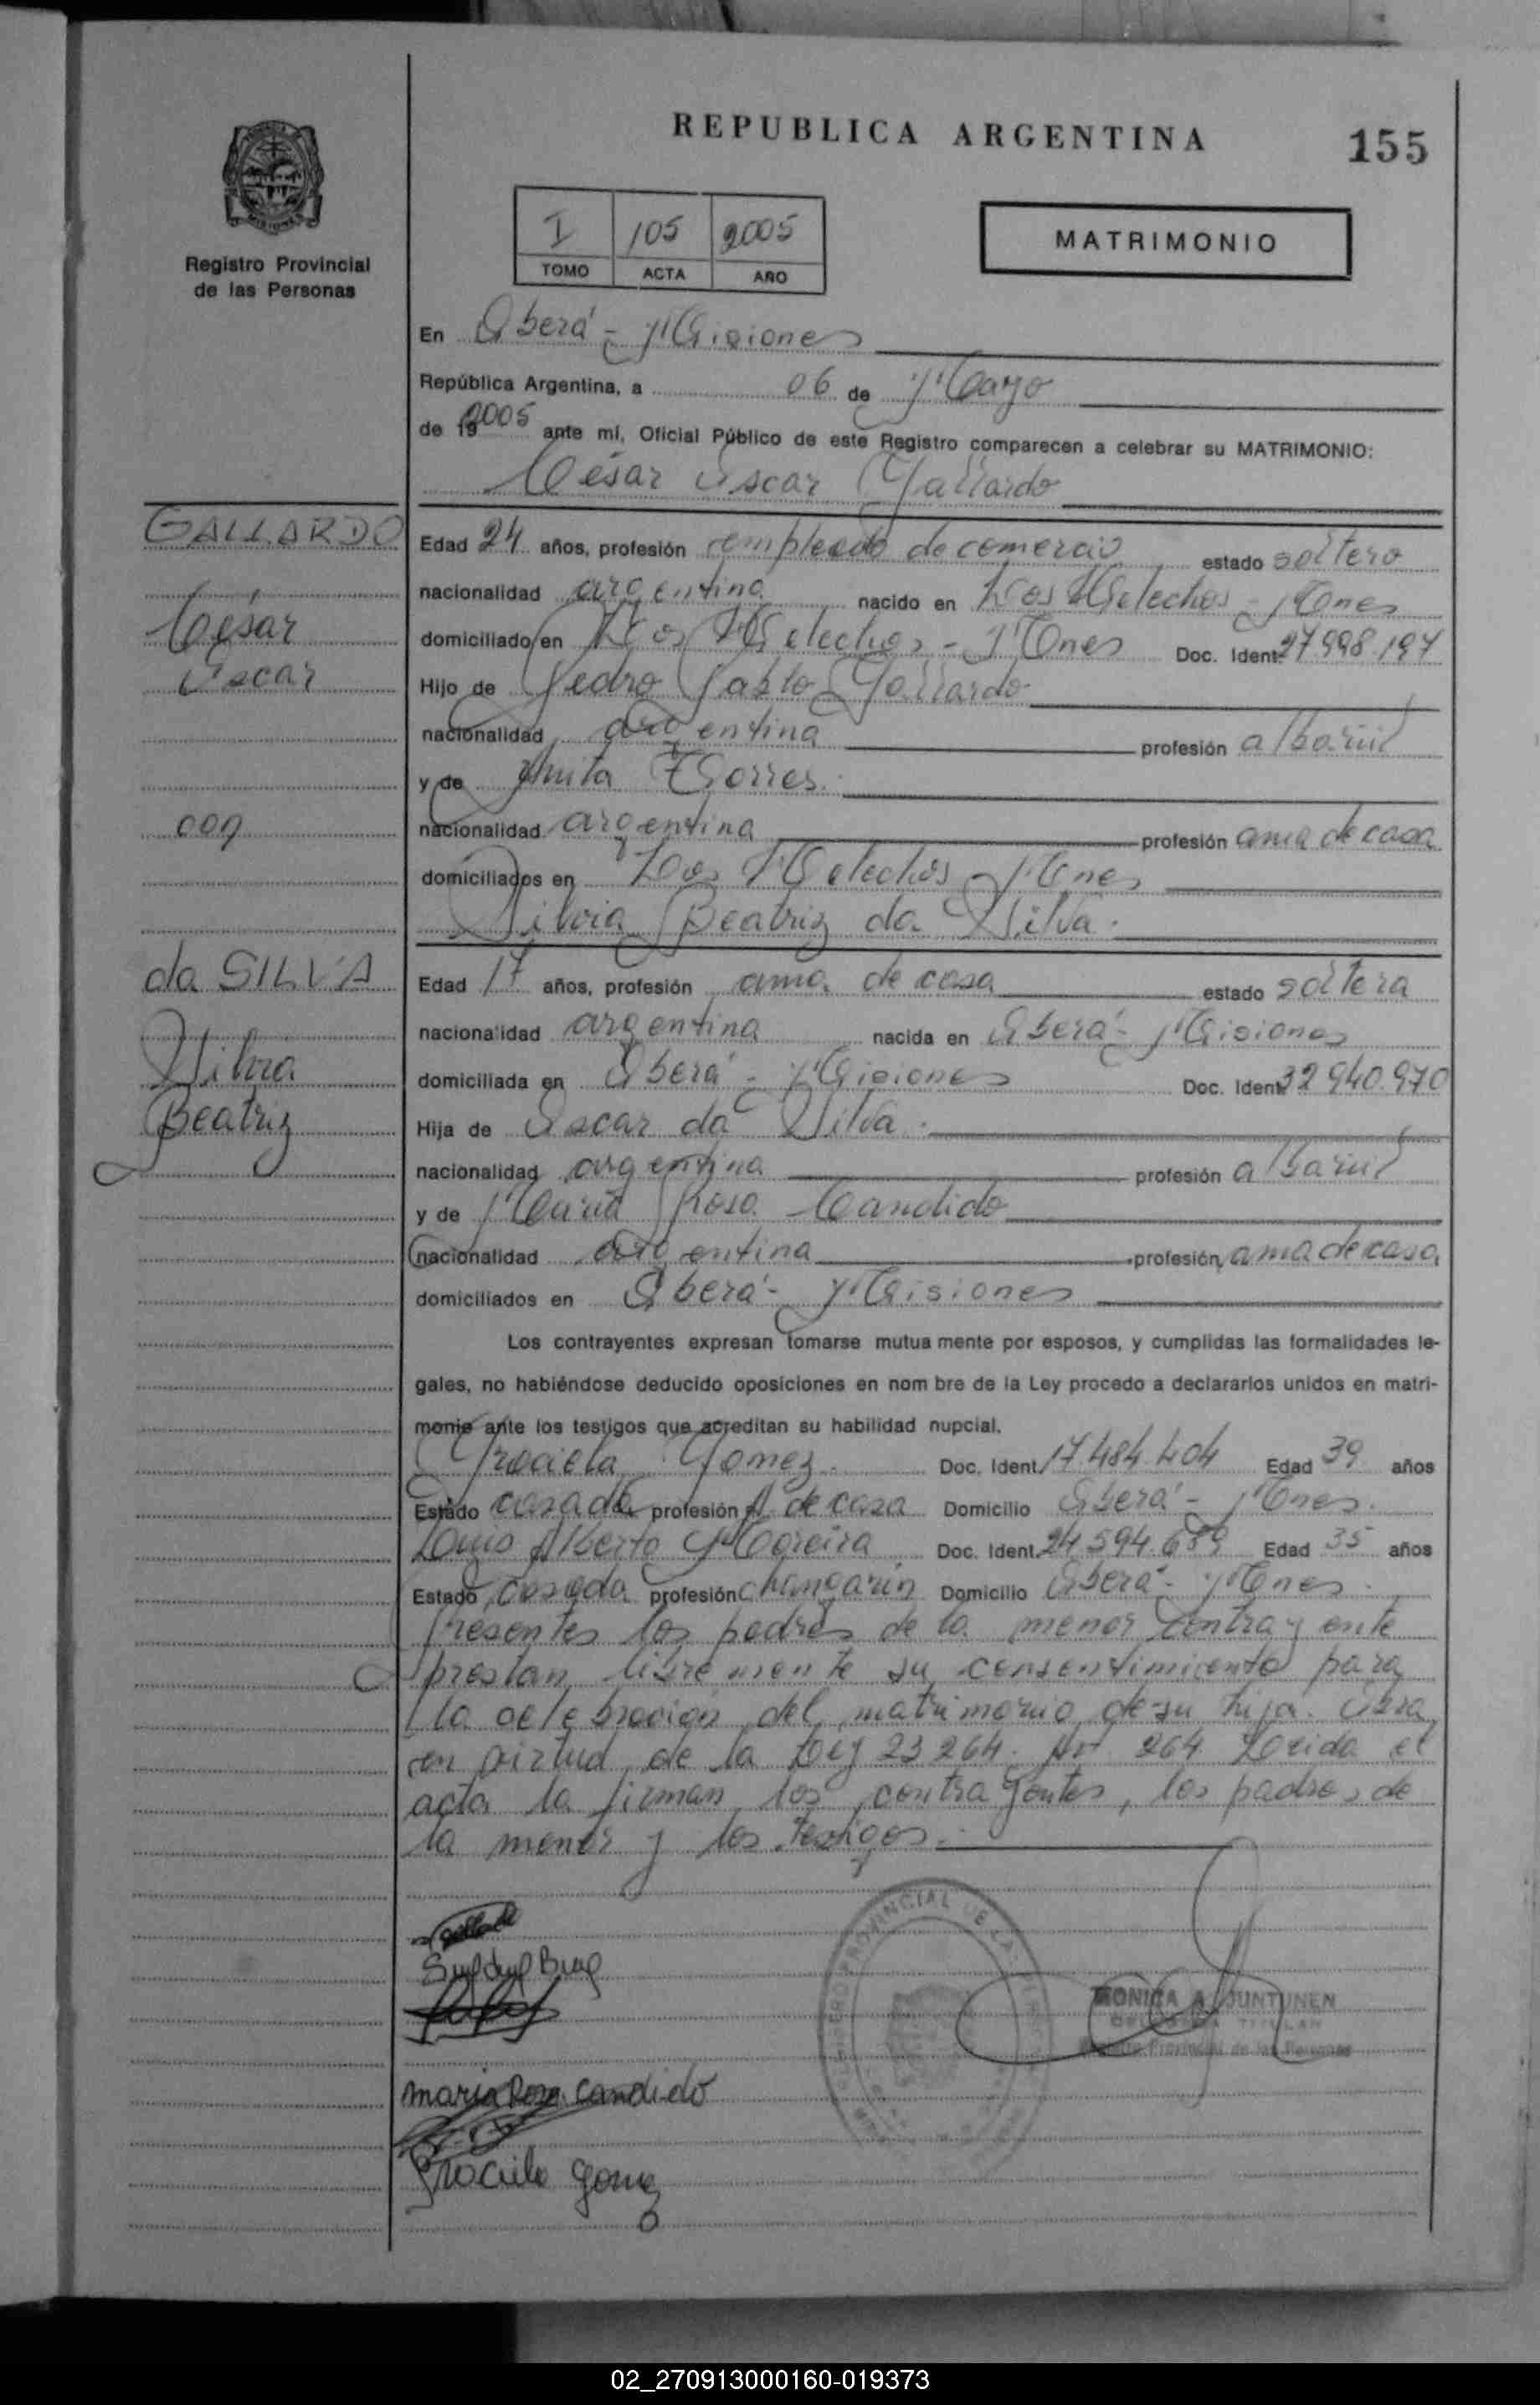 REPUBLICA ARGENTINA
155
I 105 2005
TOMO ACTA AÑO
MATRIMONIO
Registro Provincial
de las Personas
En Oberá - Misiones
República Argentina, a 06 de Mayo
de 19 2005 ante mí, Oficial Público de este Registro comparecen a celebrar su MATRIMONIO:
César Oscar Gallardo
GALLARDO
César
Oscar
009
Edad 24 años, profesión empleado de comercio estado soltero
nacionalidad argentina nacido en Los Helechos - Mones
domiciliado en Los Helechos - Mones Doc. Ident. 27.998.197
Hijo de Pedro Pablo Gallardo
nacionalidad argentina profesión albañil
y de Anita Torres.
nacionalidad argentina profesión ama de casa
domiciliados en Los Helechos - Mones
Silvia Beatriz da Silva.
da SILVA
Silvia
Beatriz
Edad 17 años, profesión ama de casa estado soltera
nacionalidad argentina nacida en Oberá - Misiones
domiciliada en Oberá - Misiones Doc. Ident. 32.940.970
Hija de Oscar da Silva.
nacionalidad argentina profesión albañil
y de María Rosa Candido
nacionalidad argentina profesión ama de casa
domiciliados en Oberá - Misiones
Los contrayentes expresan tomarse mutua mente por esposos, y cumplidas las formalidades le-
gales, no habiéndose deducido oposiciones en nom bre de la Ley procedo a declararlos unidos en matri-
monio ante los testigos que acreditan su habilidad nupcial.
Graciela Gomez. Doc. Ident. 17.484.404 Edad 39 años
Estado casada profesión A. de casa Domicilio Oberá - Mones.
Louis Alberto Moreira Doc. Ident. 24.594.689 Edad 35 años
Estado casado profesión changarín Domicilio Oberá - Mones.
Presentes los padres de la menor contrayente
prestan libremente su consentimiento para
la celebración del matrimonio de su hija. Obra
en virtud de la Ley 23264. Art. 264 Leida el
acta la firman los contrayentes, los padres de
la menor y los testigos.
MONICA A. JUNTUNEN
DELEGADA TITULAR
Registro Provincial de las Personas
maria Rosa Candido
Graciela Gomez
02_270913000160-019373